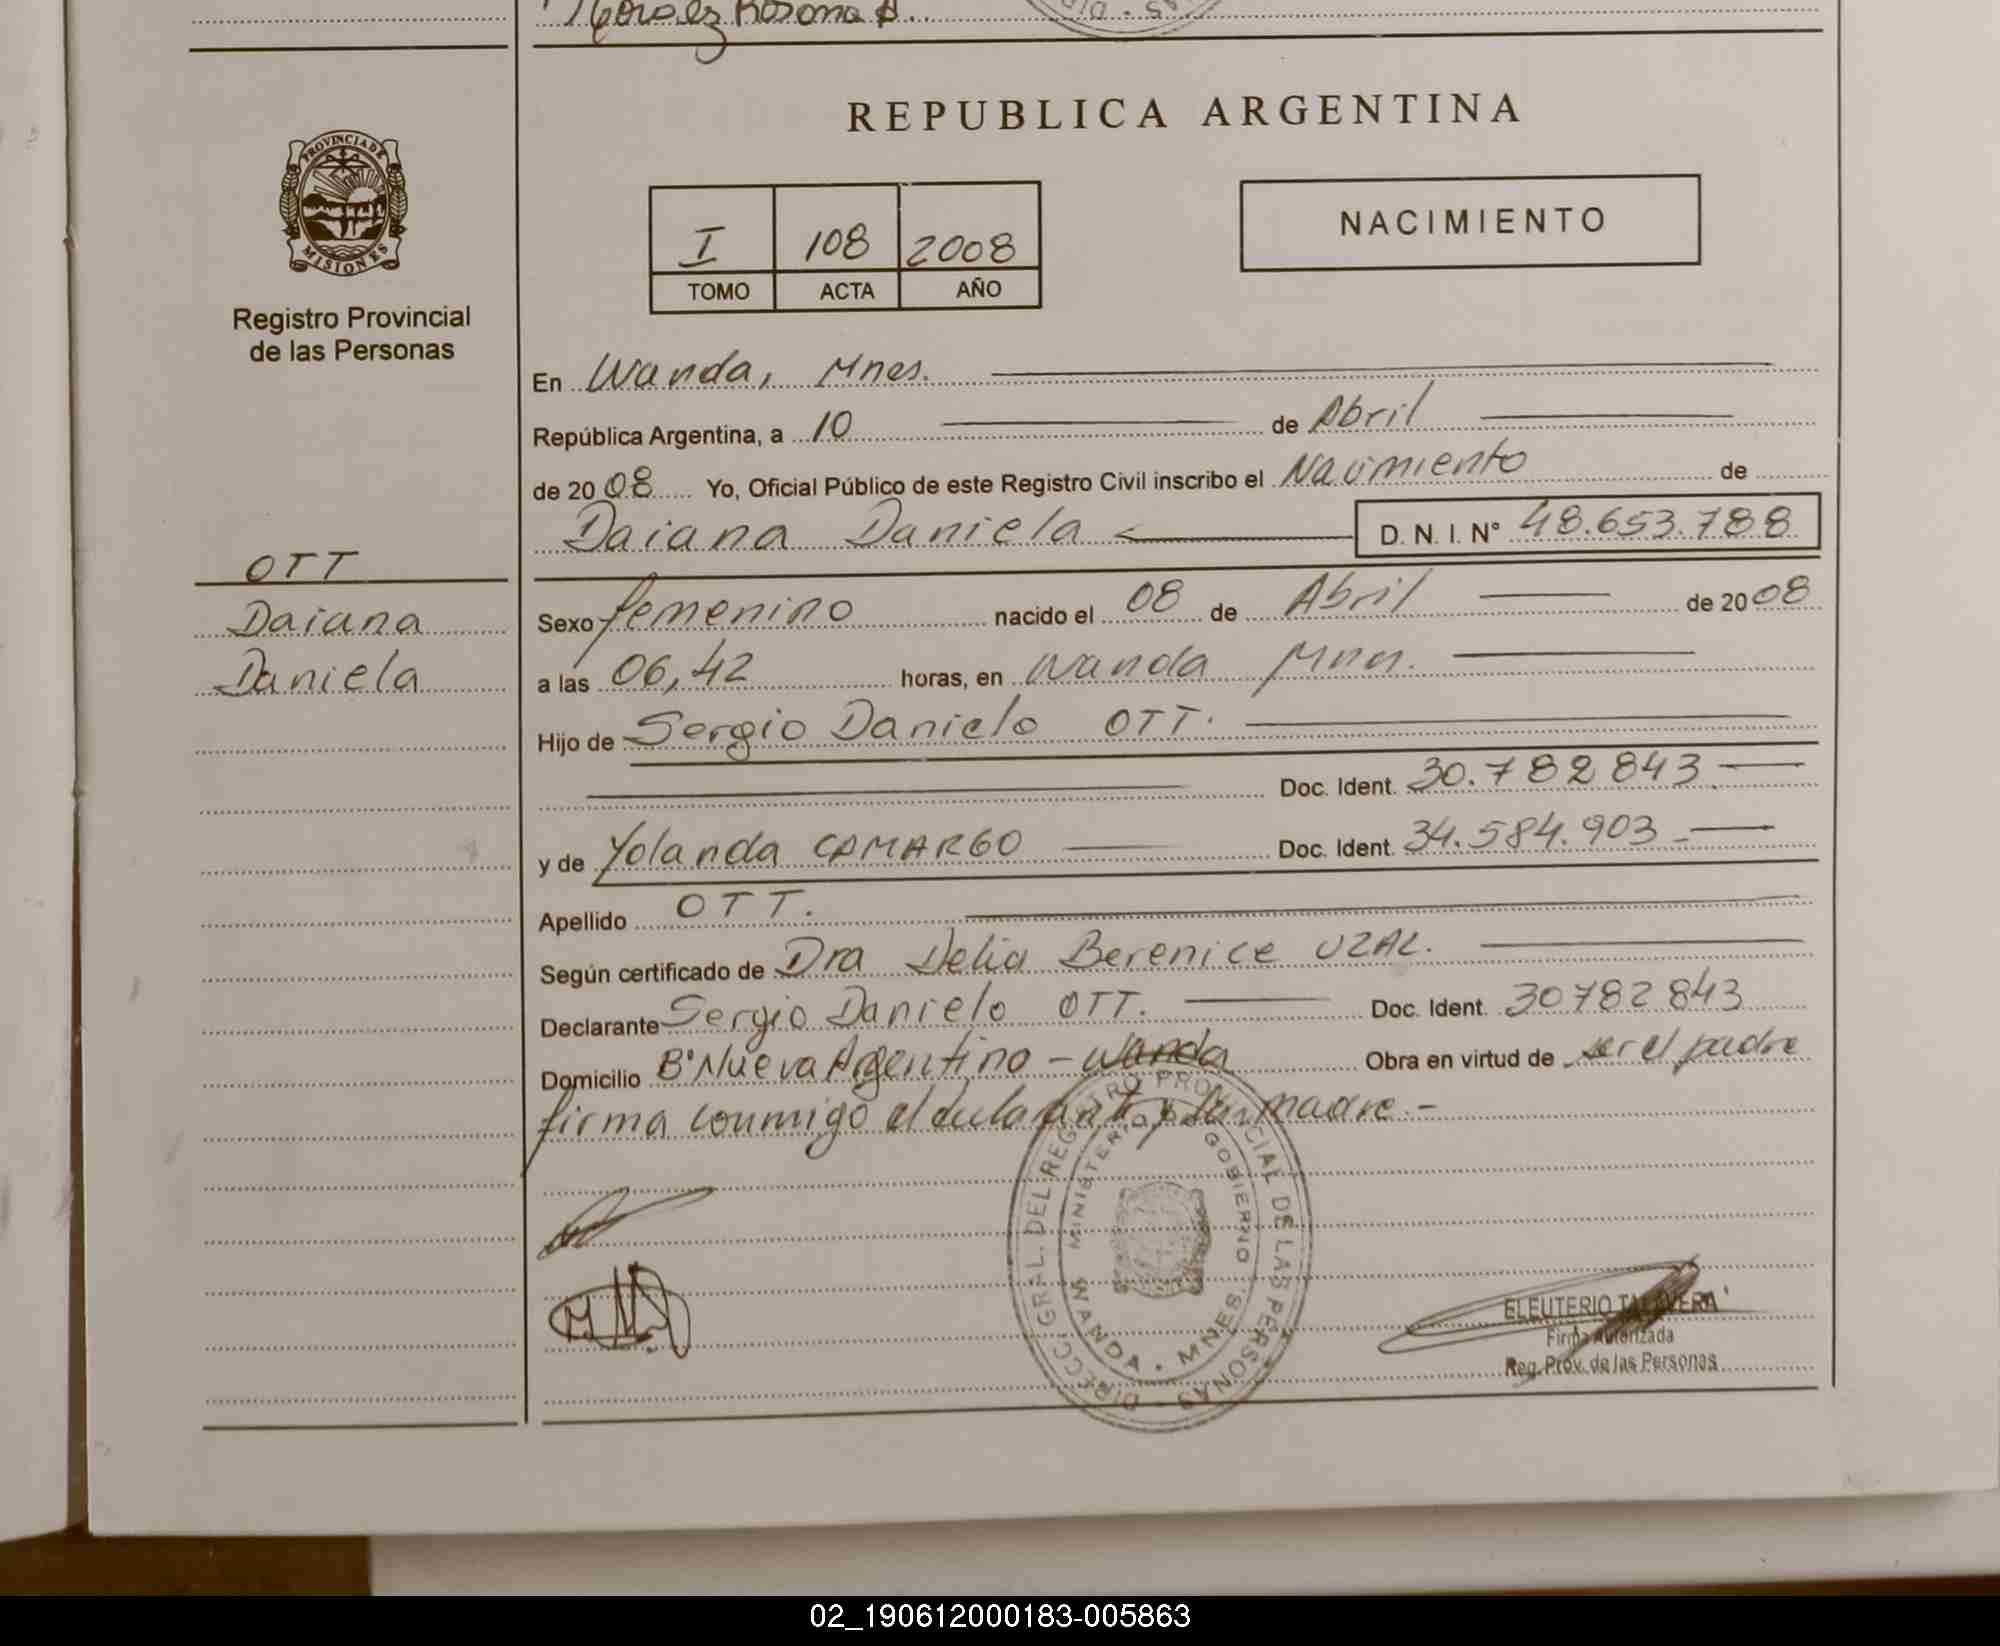 Morales Rosana A.
REPUBLICA ARGENTINA
PROVINCIA DE
MISIONES
Registro Provincial
de las Personas
I 108 2008
TOMO ACTA AÑO
NACIMIENTO
En Wanda, Mnes.
República Argentina, a 10 de Abril
de 2008 Yo, Oficial Público de este Registro Civil inscribo el Nacimiento de
Daiana Daniela D. N. I. N° 48.653.788
OTT
Daiana
Daniela
Sexo femenino nacido el 08 de Abril de 2008
a las 06,42 horas, en Wanda Mnes.
Hijo de Sergio Danielo OTT.
Doc. Ident. 30.782 843
y de Yolanda CAMARGO Doc. Ident. 34.584.903
Apellido OTT.
Según certificado de Dra Delia Berenice UZAL.
Declarante Sergio Danielo OTT. Doc. Ident. 30782843
Domicilio B° Nueva Argentino - Wanda Obra en virtud de ser el padre
firma conmigo el declarante y la madre.-
DIRECC. GRAL. DEL REGISTRO PROVINCIAL DE LAS PERSONAS
MINISTERIO DE GOBIERNO
WANDA - MNES.
ELEUTERIO TALAVERA
Firma Autorizada
Reg. Prov. de las Personas
02_190612000183-005863